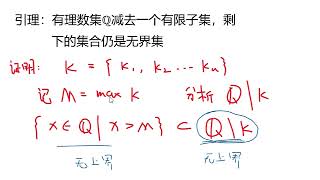 引理：有理数集ℚ减去一个有限子集，剩
下的集合仍是无界集
证明: K = { k₁, k₂ ... kₙ }
记 M = max K 分析 ℚ \ K
{ x ∈ ℚ | x > M } ⊂ ℚ \ K
无上界 无上界